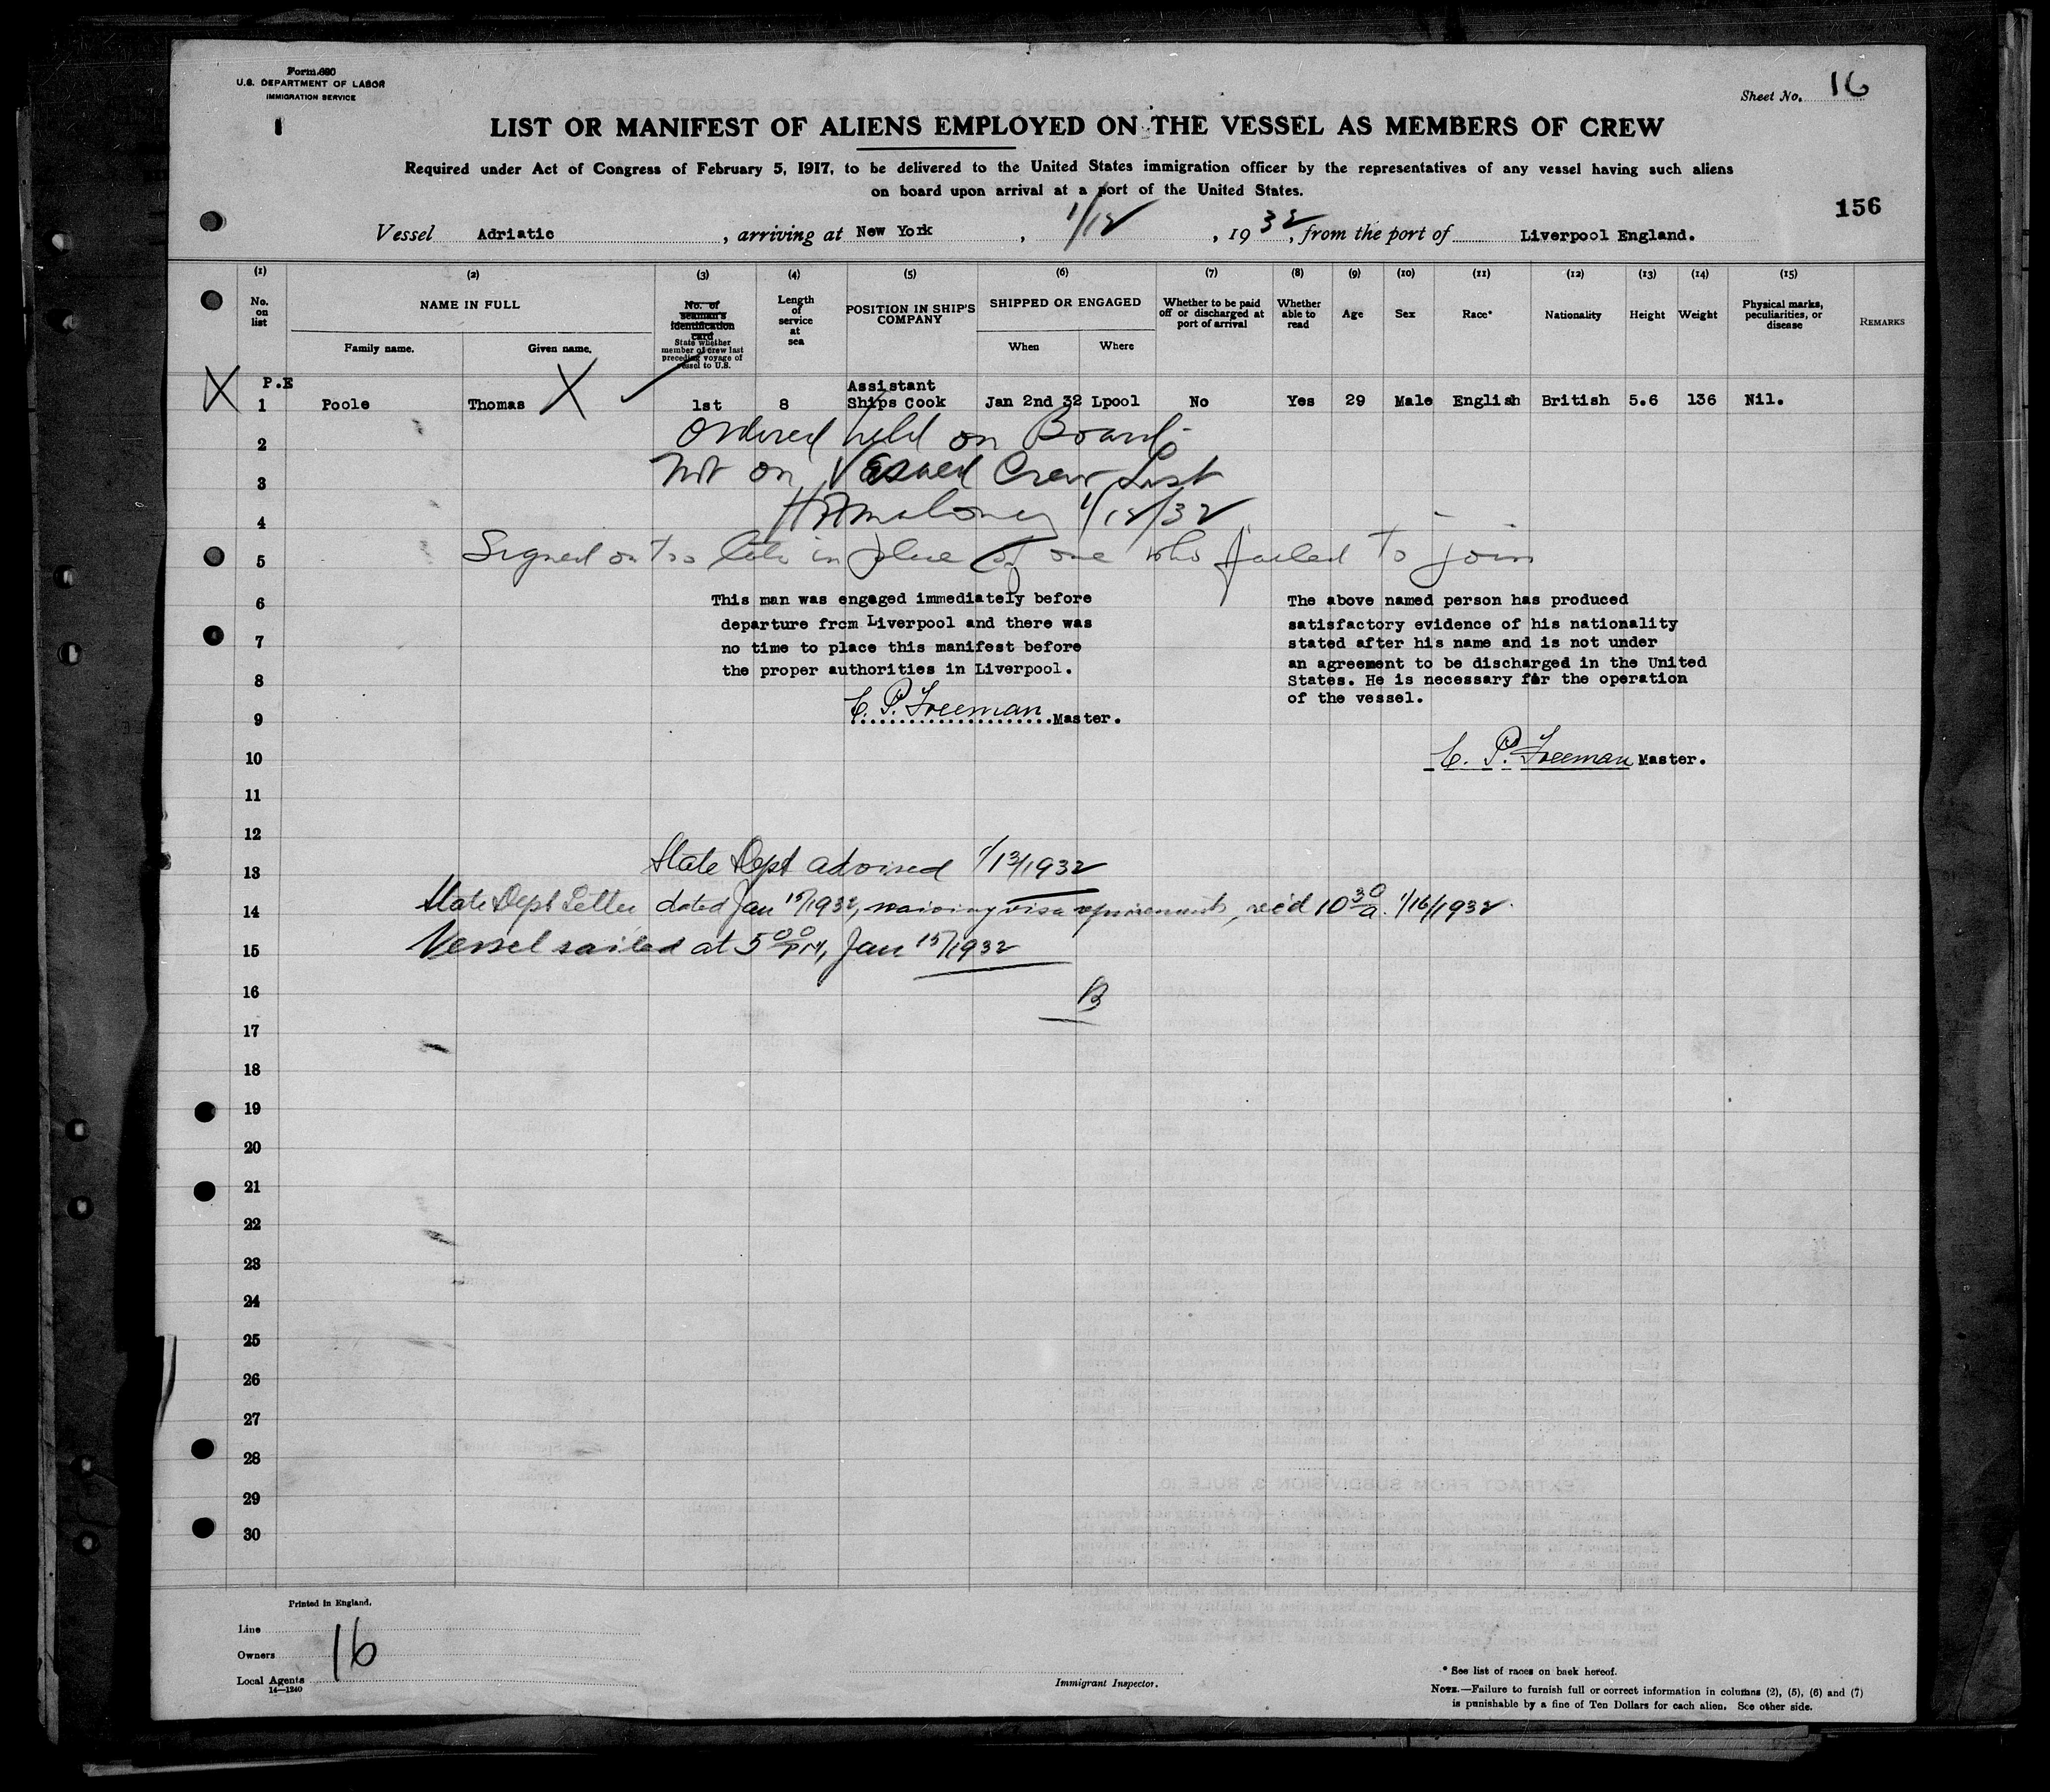 Form 680
U.S. DEPARTMENT OF LABOR
IMMIGRATION SERVICE
Sheet No. 16
LIST OR MANIFEST OF ALIENS EMPLOYED ON THE VESSEL AS MEMBERS OF CREW
Required under Act of Congress of February 5, 1917, to be delivered to the United States immigration officer by the representatives of any vessel having such aliens
on board upon arrival at a port of the United States.
156
Vessel Adriatic, arriving at New York, 1/12, 1932, from the port of Liverpool England.
(1) (2) (3) (4) (5) (6) (7) (8) (9) (10) (11) (12) (13) (14) (15)
No. on list
NAME IN FULL
Family name. Given name.
No. of seaman's identification card
State whether member of crew last preceding voyage of vessel to U.S.
Length of service at sea
POSITION IN SHIP'S COMPANY
SHIPPED OR ENGAGED
When Where
Whether to be paid off or discharged at port of arrival
Whether able to read
Age
Sex
Race*
Nationality
Height
Weight
Physical marks, peculiarities, or disease
REMARKS
X P.E Assistant
1 Poole Thomas X 1st 8 Ships Cook Jan 2nd 32 Lpool No Yes 29 Male English British 5.6 136 Nil.
2 Ordered held on Board
3 Not on Visaed Crew List
4 Maloney 1/12/32
5 Signed on too late in place of one who failed to join
6 This man was engaged immediately before
departure from Liverpool and there was
7 no time to place this manifest before
the proper authorities in Liverpool.
8
C. P. Freeman Master.
9
The above named person has produced
satisfactory evidence of his nationality
stated after his name and is not under
an agreement to be discharged in the United
States. He is necessary for the operation
of the vessel.
C. P. Freeman Master.
10
11
12
13 State Dept advised 1/13/1932
14 State Dept Letter dated Jan 15/1932, waiving visa requirements, rec'd 10 30 a. 1/16/1932.
15 Vessel sailed at 5 00 PM, Jan 15/1932
16
17
18
19
20
21
22
23
24
25
26
27
28
29
30
Printed in England.
Line
Owners
Local Agents
14—1240
16
Immigrant Inspector.
* See list of races on back hereof.
NOTE.—Failure to furnish full or correct information in columns (2), (5), (6) and (7)
is punishable by a fine of Ten Dollars for each alien. See other side.